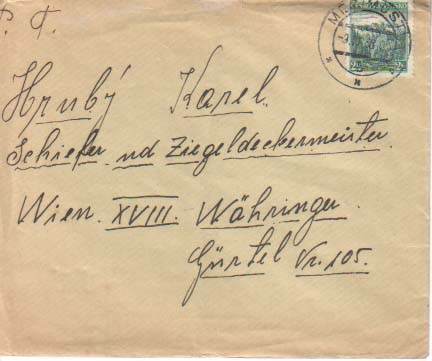 P. T.
Hrubý Karel.
Schiefer nd Ziegeldeckermeister
Wien. XVIII. Währinger
Gürtel Nr. 105.